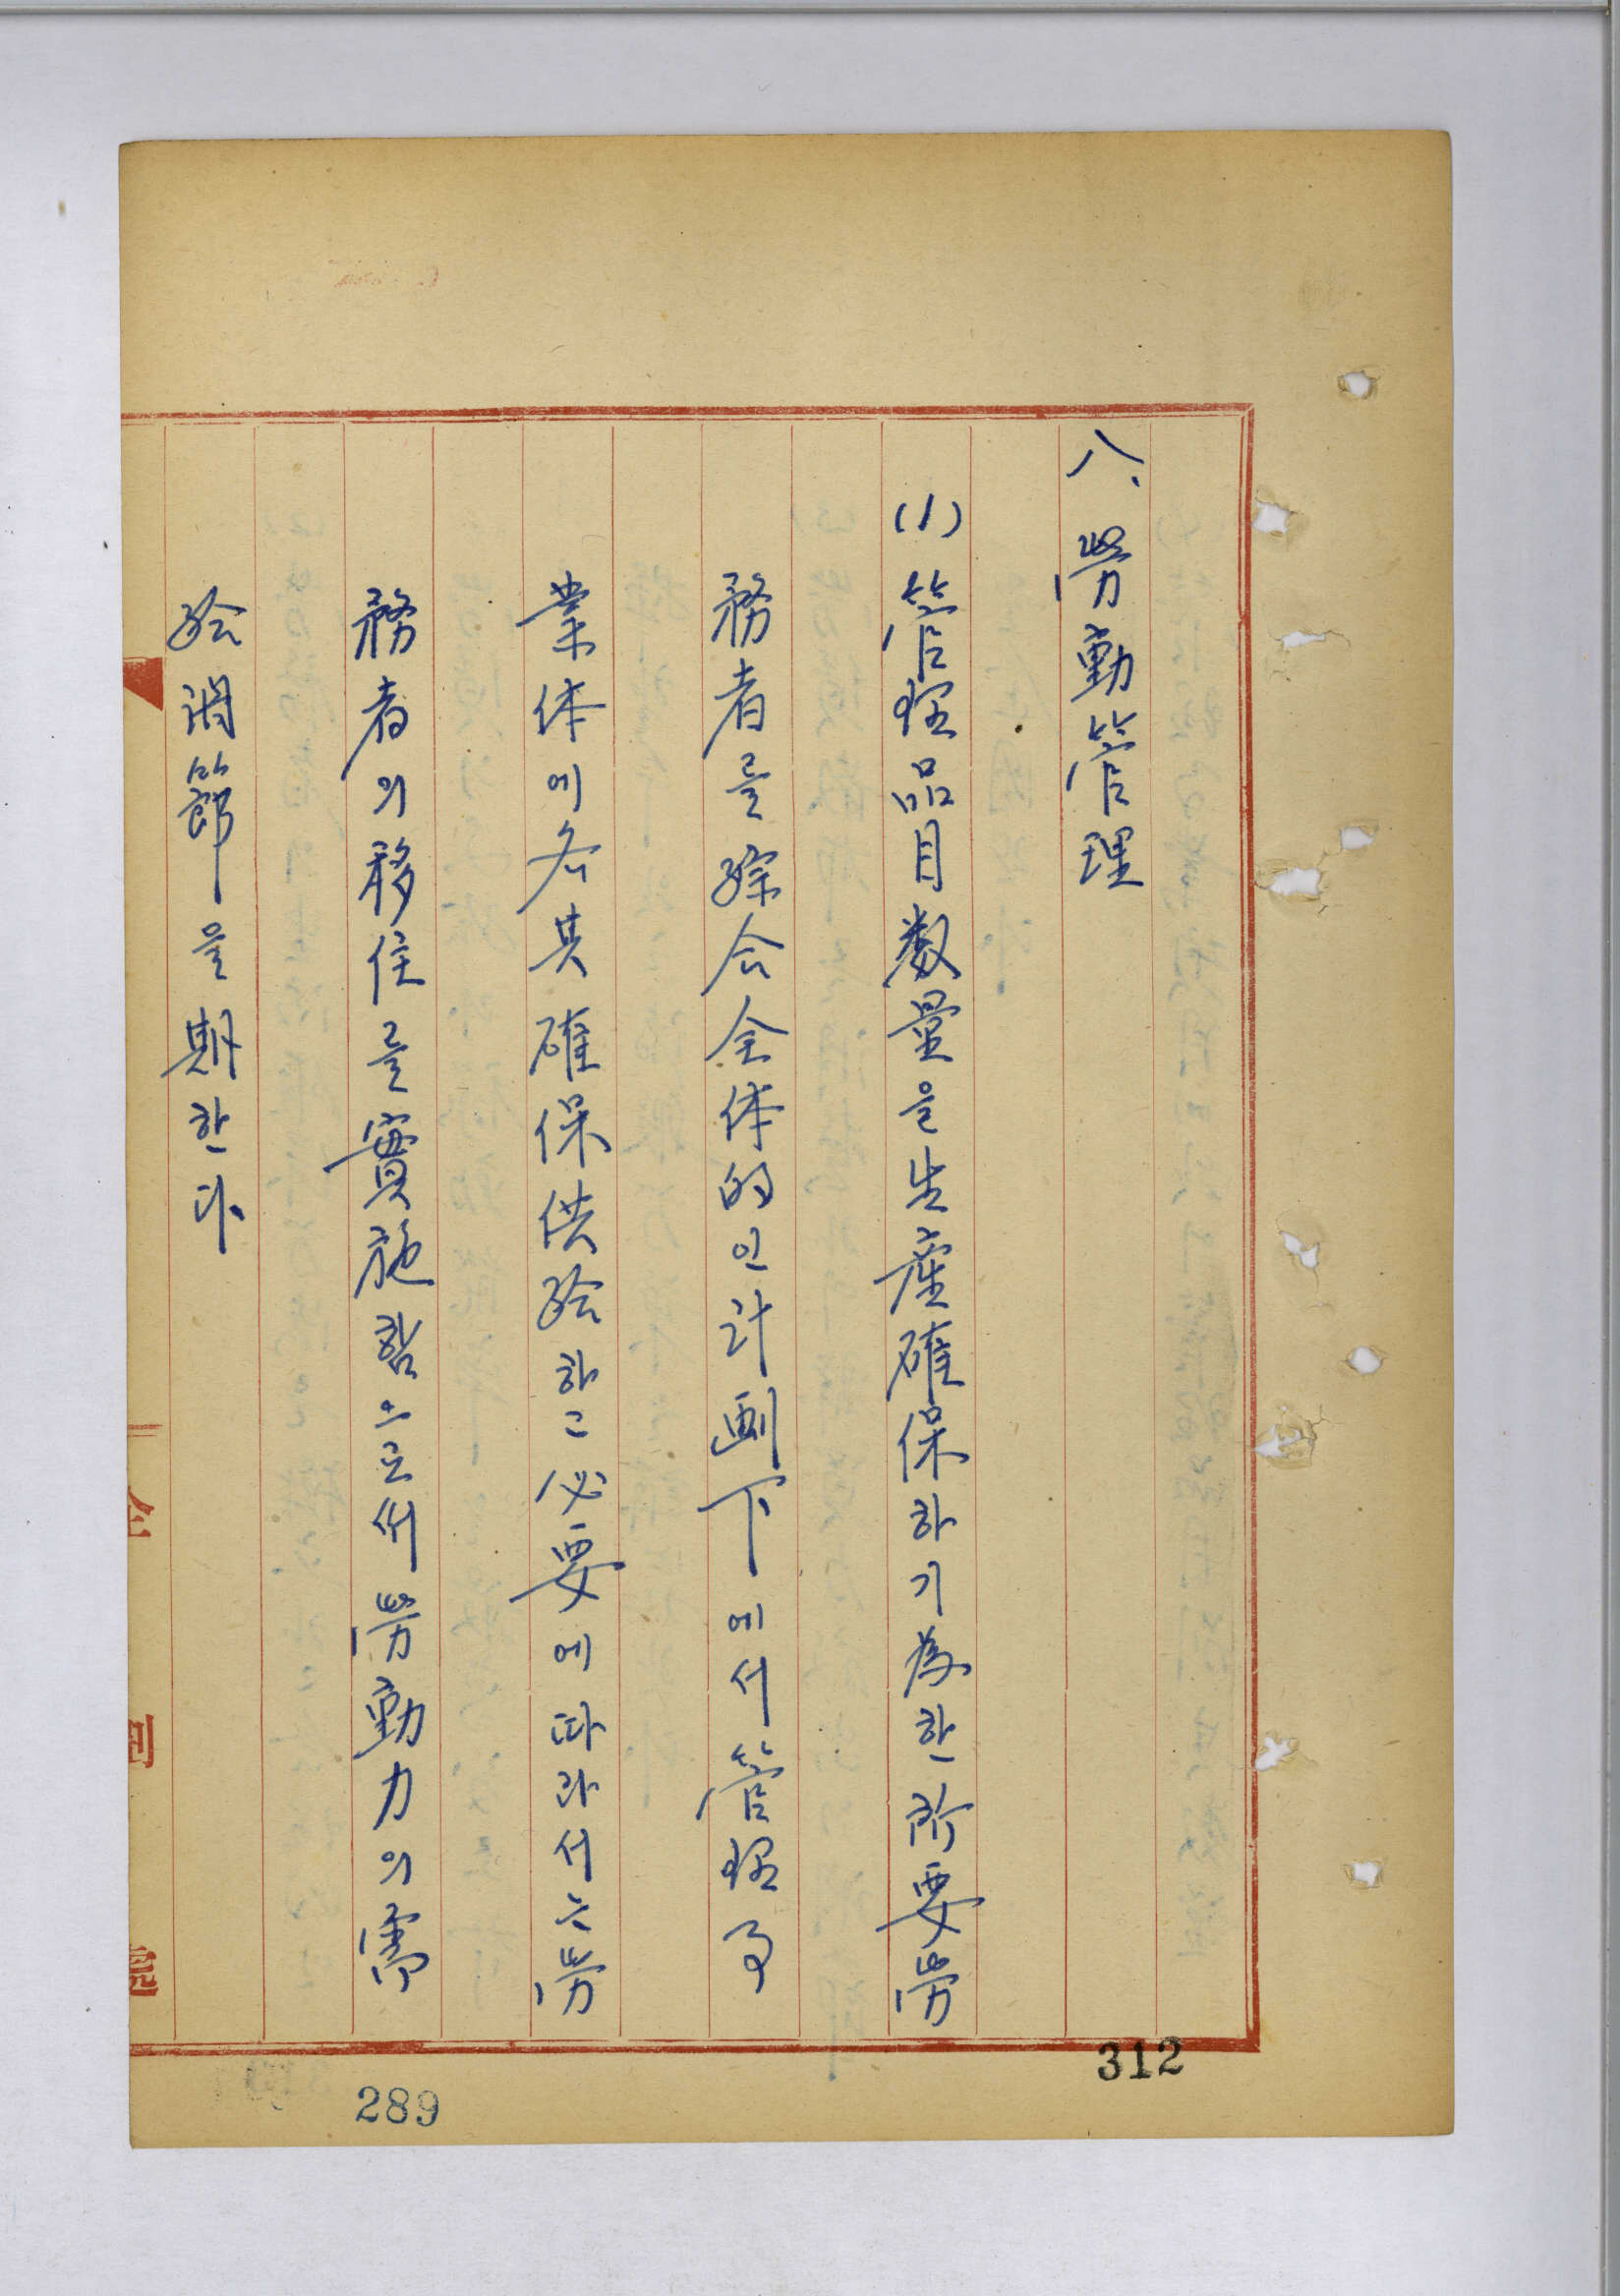 八、勞動管理
(1) 管理品目数量을生産確保하기為한所要勞
務者를綜合全体的인計画下에서管理코
業体에各其確保供給하고必要에따라서는勞
務者의移住를實施함으로서勞動力의需
給調節을期한다
312
289